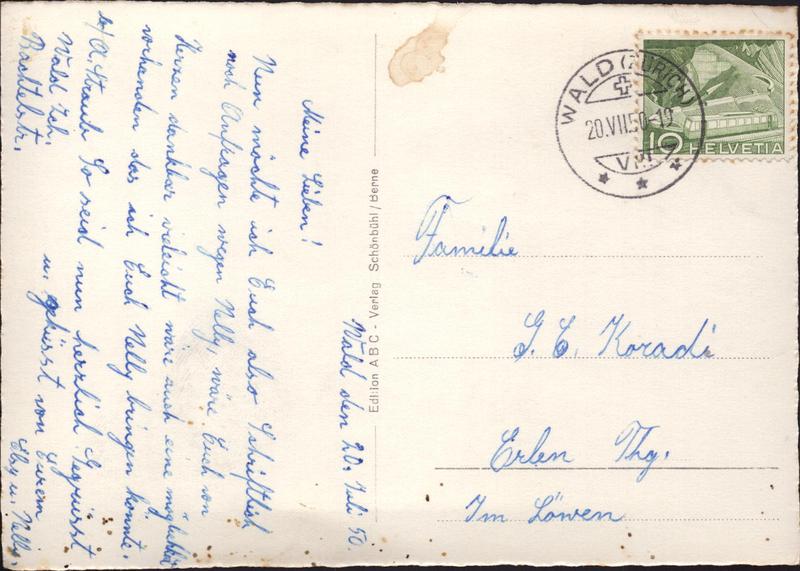 Wald den 20. Juli 50.
Meine Lieben!
Nun möchte ich Euch also Schriftlich
noch Anfragen wegen Nelly, wäre Euch von
Herzen dankbar vieleicht wäre auch eine
vorhanden das ich Euch Nelly bringen könnte.
So seid nun herzlich Gegrüsst
u. geküsst von Eurem
u. Nelly.
A. Straub
Wald Zch.
Bachtelstr.
Edition ABC - Verlag Schönbühl/Berne
WALD (ZÜRICH)
20.VII.50-19
10 HELVETIA
Familie
G. E. Koradi
Erlen Thg.
Im Löwen